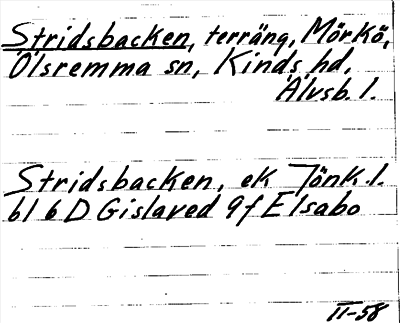 Stridsbacken, terräng, Mörkö,
Ölsremma sn, Kinds hd,
Älvsb. l.
Stridsbacken, ek Jönk. l.
bl 6 D Gislaved 9f Elsabo
II-58